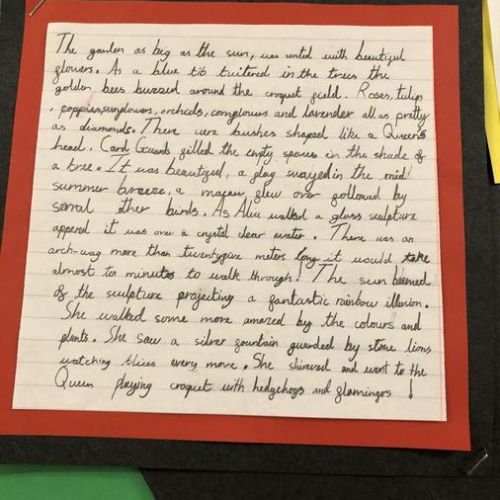 The garden as big as the sun, was united with beautiful
flowers. As a blue tit twitered in the trees the
golden bees buzzed around the croquet field. Roses, tulips
, poppies, sunflowers, orchids, cornflowers and lavender all as pretty
as diamonds. There were bushes shaped like a Queens
head. Card Guards filled the empty spaces in the shade of
a tree. It was beautiful, a flag swayed in the mid
summer breeze, a flew over followed by
other birds. As walked a glass sculpture
appered it was over a crystal clear water. There was an
arch-way more than twentyfive meters long it would take
almost ten minutes to walk through! The sun beemed
of the sculpture projecting a fantastic rainbow illusion.
She walked some more amazed by the colours and
plants. She saw a silver fountain guarded by stone lions
watching every move. She shivered and went to the
Queen playing croquet with hedgehogs and flamingos!